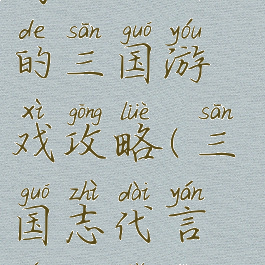 de sān guó yóu
的三国游
xì gōng lüè sān
戏攻略(三
guó zhì dài yán
国志代言